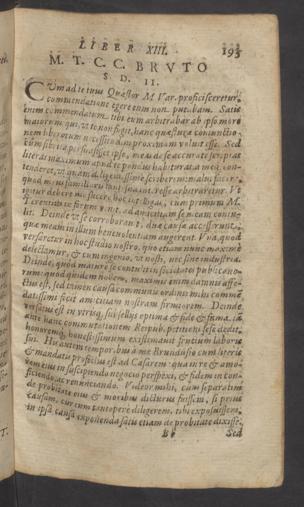 LIBER XIII. 193
M. T. C. C. BRVTO
S. D. II.
CVm ad te tuus Quæstor M. Var. proficisceretur,
commendatione egere eum non putabam. Satis
enim commendatum tibi eum arbitrabar ab ipso more
maiorum qui, ut te non fugit, hanc quæsturæ coniunctio-
nem liberorum necessitudini proximam voluit esse. Sed
cum sibi ita persuasisset ipse, meas de se accuratè scriptas
literas maximum apud te pondus habituras, à meque con-
tenderet, ut quàm diligentissimè scriberem: malui facere,
quod meus familiaris tanti sua interesse arbitraretur. Vt
igitur debere me facere hoc intelligas, cum primum M.
Terentius in forum venit, ad amicitiam se meam contu-
lit. Deinde ut se corroborauit, duæ causæ accesserunt,
quæ meam in illum beneuolentiam augerent. Vna, quòd
versaretur in hoc studio nostro, quo etiam nunc maximè
delectamur, & cum ingenio, vt nosti, nec sine industria.
Deinde, quòd maturè se contulit in societates publicano-
rum: quod quidem nollem, maximis enim damnis affe-
ctus est, sed tamen causa communis ordinis mihi comme-
datissimi fecit amicitiam nostram firmiorem. Deinde
versatus est in vtrisq; subsellijs optima & fide & fama, ia
ante hanc commutationem Reipub. petitioni sese dedit,
honoremq; honestissimum existimauit fructum laboris
sui. His autem temporibus à me Brundusio cum literis
& mandatis profectus est ad Cæsarem: qua in re & amo-
rem eius in suscipiendo negocio perspexi, & fidem in con-
ficiendo, ac renunciando. Videor mihi, cum separatim
de probitate eius & moribus dicturus fuissem, si prius
causam, cur eum tantopere diligerem, tibi exposuissem,
in ipsa causa exponenda satis etiam de probitate dixisse.
Bb Sed